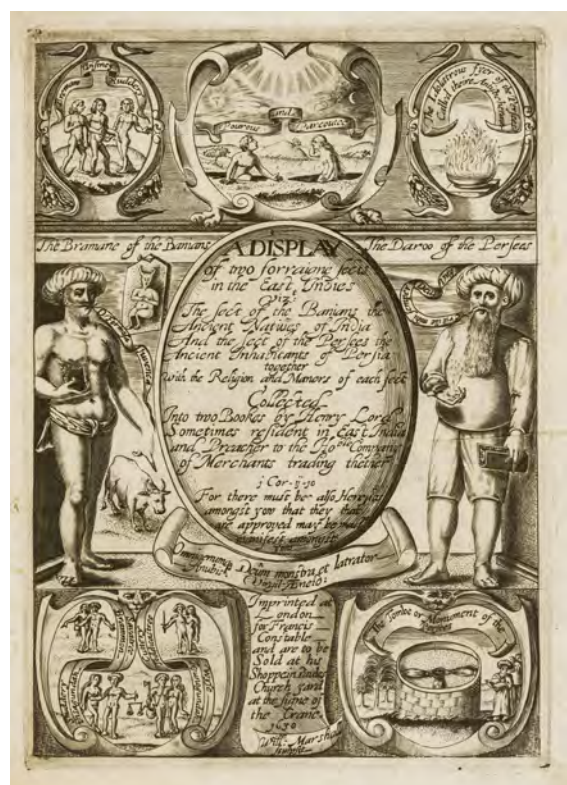 Vistney
Ruddery
Pourous and Parcoutee
The Idolatrous Fyer of the
Called theire
The Bramane of the Banians
The Daroo of the Persees
A DISPLAY
of two forraigne sects
in the East Indies
Viz:
The sect of the Banians the
Ancient Natives of India
And the sect of the Persees the
Ancient Inhabitants of Persia
together
with the Religion and Maners of each sect
Collected
Into two Bookes by Henry Lord
Sometimes resident in East India
and Preacher to the Hoble Company
of Merchants trading thether
For there must be also Heresies
amongst you that they that
are approved may be made
manifest amongst
you
Omnigenumq Deum monstra, et latrator
Anubis
Imprinted at
London
for Francis
Constable
and are to be
Sold at his
Shoppe in Paules
Church yard
at the signe of
the Crane
1630
Will: Marshall
sculpsit
The Forlet or Monument of the
Persees